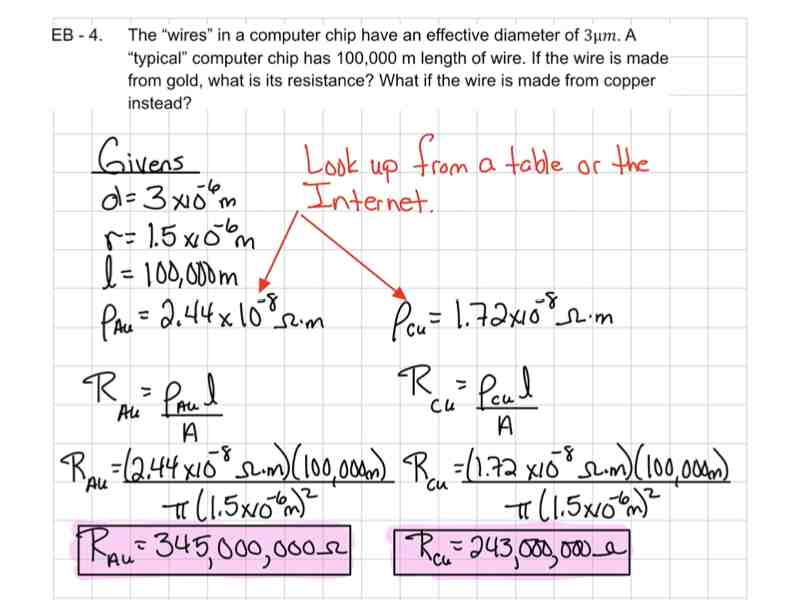 EB - 4. The “wires” in a computer chip have an effective diameter of 3μm. A
“typical” computer chip has 100,000 m length of wire. If the wire is made
from gold, what is its resistance? What if the wire is made from copper
instead?
Givens
Look up from a table or the
Internet.
d = 3 x10⁻⁶ m
r = 1.5 x10⁻⁶ m
l = 100,000 m
ρAu = 2.44 x 10⁻⁸ Ω·m
ρCu = 1.72x10⁻⁸ Ω·m
RAu = ρAu l / A
RCu = ρCu l / A
RAu = (2.44 x10⁻⁸ Ω·m)(100,000m) / π(1.5x10⁻⁶m)²
RCu = (1.72 x10⁻⁸ Ω·m)(100,000m) / π(1.5x10⁻⁶m)²
RAu = 345,000,000 Ω
RCu = 243,000,000 Ω